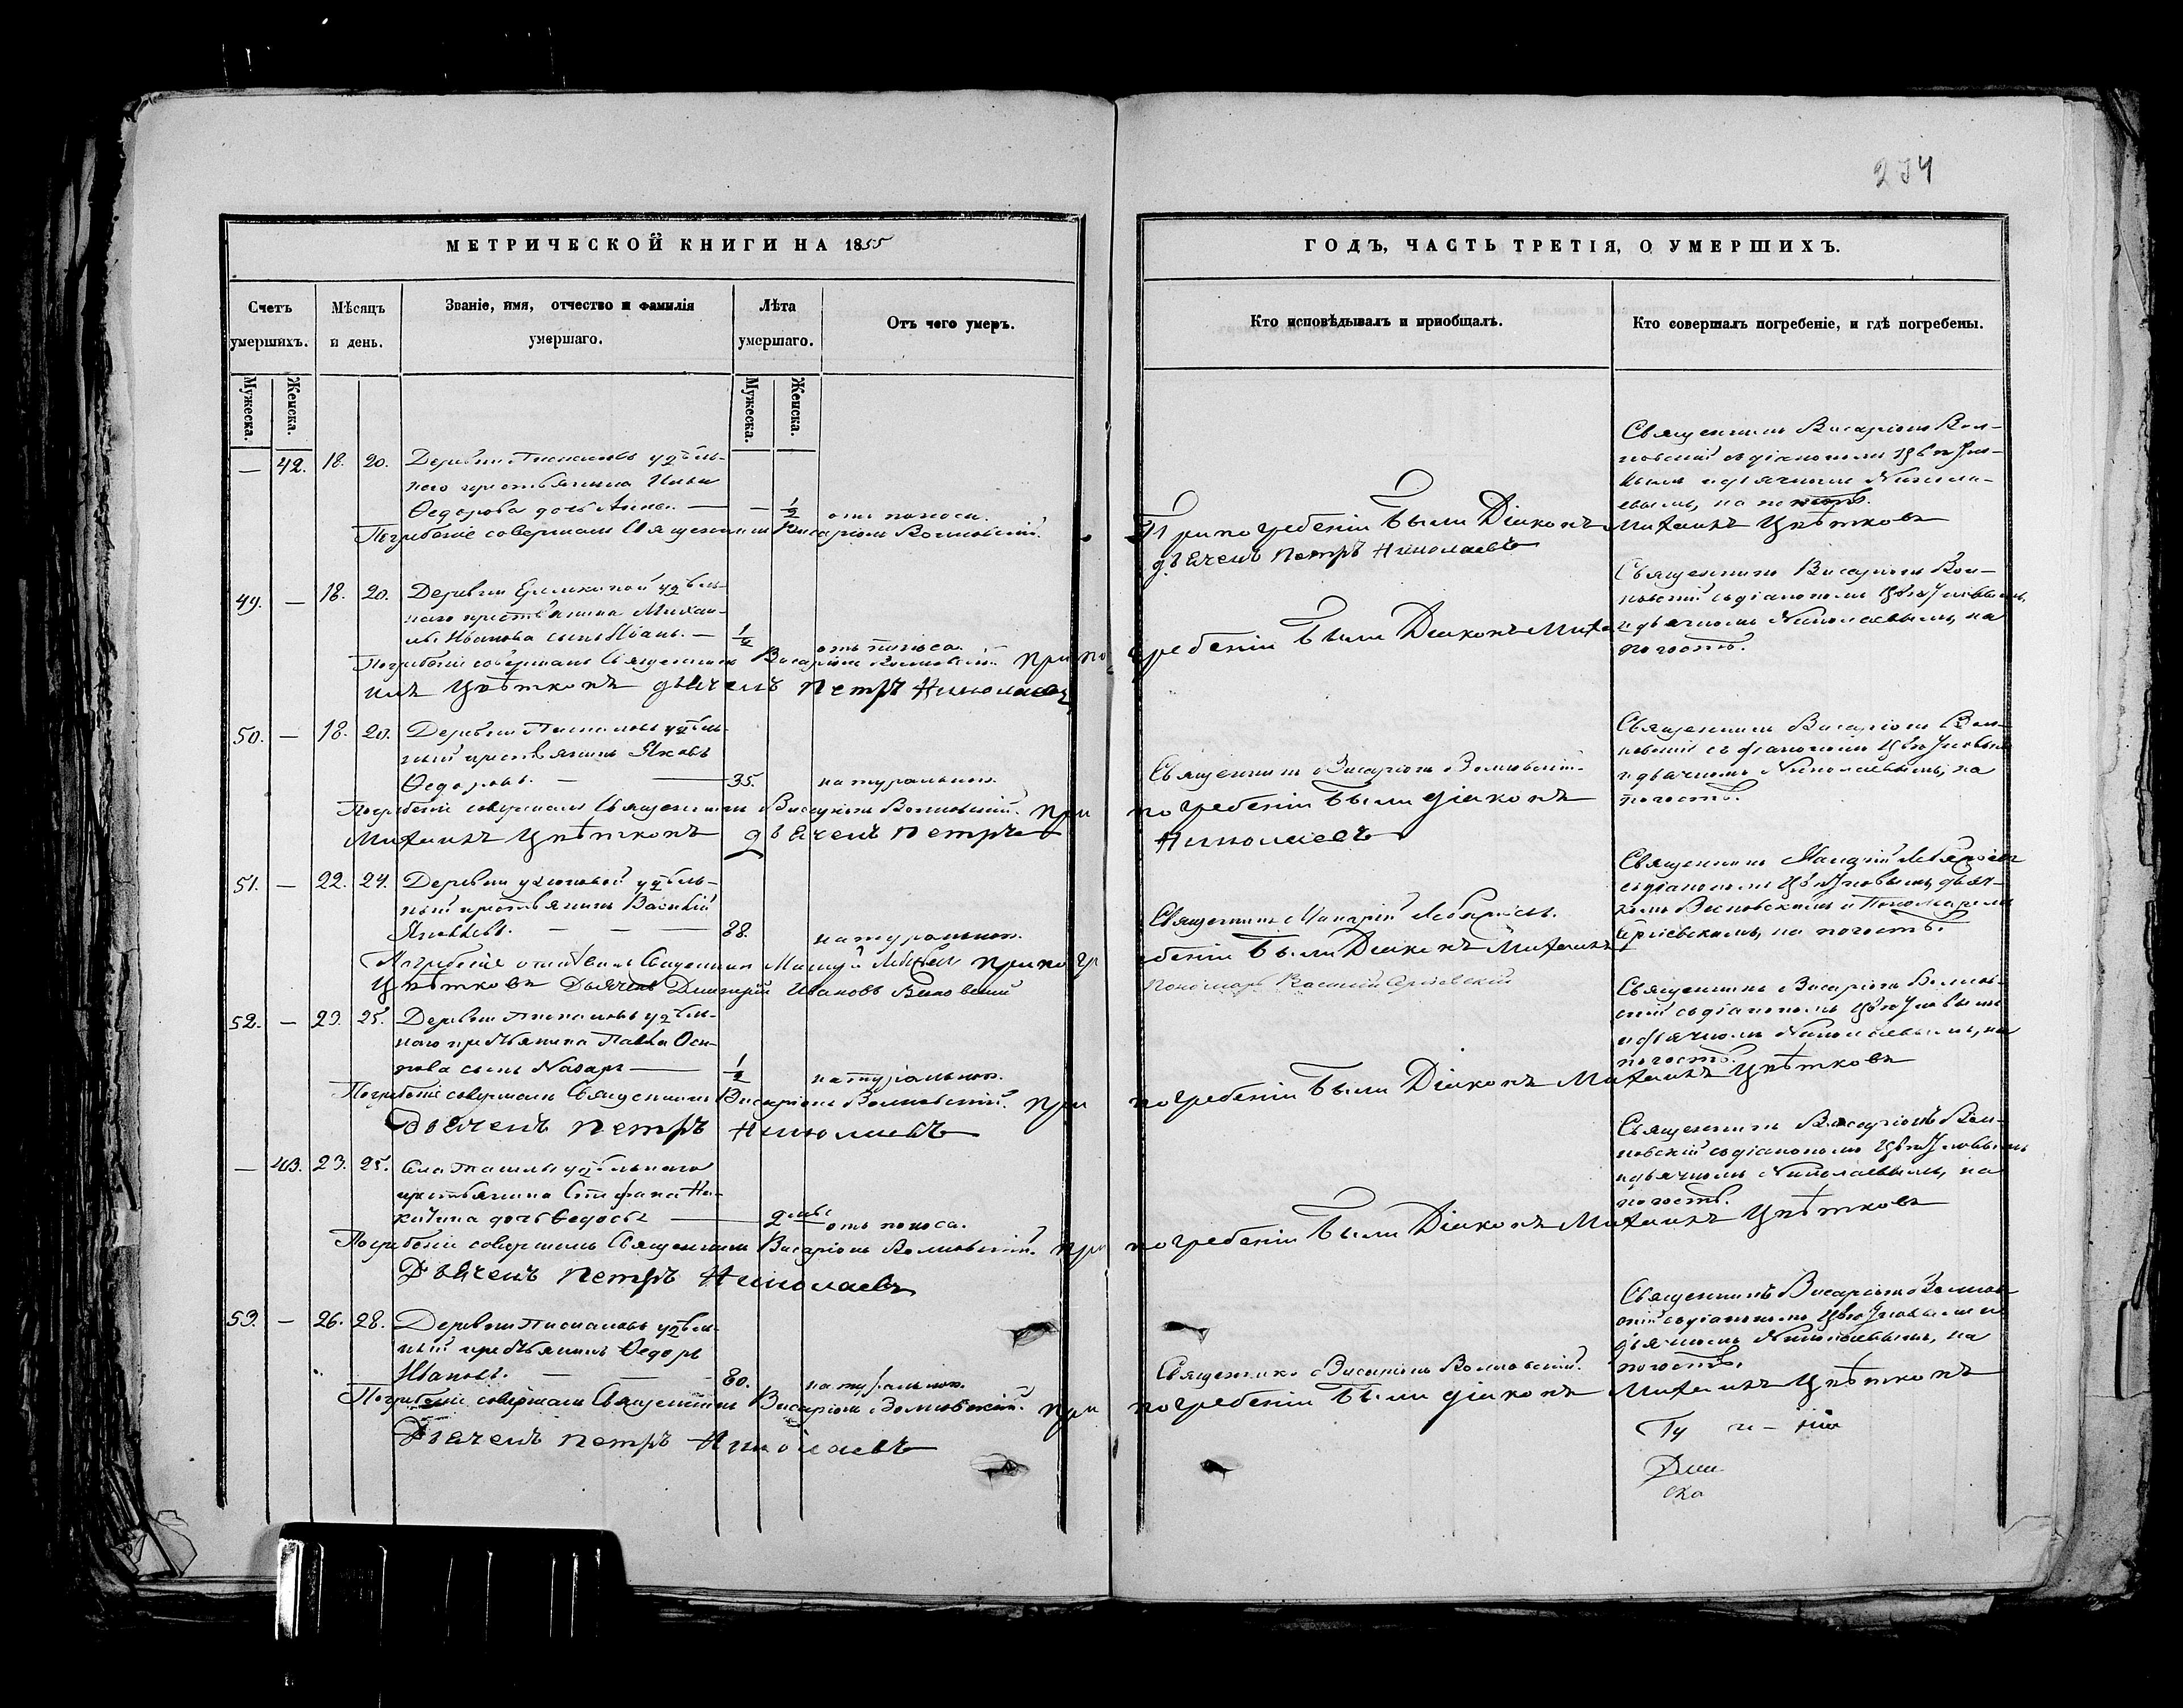 234
МЕТРИЧЕСКОЙ КНИГИ НА 1855
ГОДЪ, ЧАСТЬ ТРЕТІЯ, О УМЕРШИХЪ.
Счетъ умершихъ.
Мѣсяцъ и день.
Званіе, имя, отчество и фамилія
умершаго.
Лѣта умершаго.
Отъ чего умеръ.
Кто исповѣдывалъ и приобщалъ.
Кто совершалъ погребеніе, и гдѣ погребены.
Мужеска.
Женска.
Мужеска.
Женска.
— 42. 18. 20. Деревни удѣль-
наго крестьянина Ильи
Ѳедорова дочь Анна. — — 1/2 отъ поноса.
Священникъ Висаріонъ Вол-
ковскій съ діакономъ Цвѣтко-
вымъ и дьячкомъ Никола-
евымъ, на погостѣ.
Погребеніе совершалъ Священникъ Висаріонъ Волковскій.
При погребеніи были Діаконъ Михаилъ Цвѣтковъ
дьячекъ Петръ Николаевъ
49. — 18. 20. Деревни удѣль-
наго крестьянина Михаи-
ла Иванова сынъ Иванъ. — 1/2 отъ поноса.
Священникъ Висаріонъ Вол-
ковскій съ діакономъ Цвѣтковымъ
и дьячкомъ Николаевымъ, на
погостѣ.
Погребеніе совершалъ Священникъ Висаріонъ Волковскій. При погребеніи были Діаконъ Миха
илъ Цвѣтковъ дьячекъ Петръ Николаевъ
50. — 18. 20. Деревни удѣль-
ный крестьянинъ Яковъ
Ѳедоровъ. — — 35. натуральною.
Священникъ Висаріонъ Волковскій.
Священникъ Висаріонъ Вол-
ковскій съ діакономъ Цвѣтковымъ
и дьячкомъ Николаевымъ, на
погостѣ.
Погребеніе совершалъ Священникъ Висаріонъ Волковскій. При погребеніи были діаконъ
Михаилъ Цвѣтковъ дьячекъ Петръ Николаевъ
51. — 22. 24. Деревни удѣль-
ный крестьянинъ Василій
Яковлевъ. — — — 88. натуральною.
Священникъ Макарій
Священникъ Макарій
съ діакономъ Цвѣтковымъ, дьяч-
комъ и Пономаремъ
на погостѣ.
Погребеніе Священникъ При погр
ебеніи были Діаконъ Михаилъ
Цвѣтковъ Дьячекъ Дмитрій Ивановъ
Пономарь Василій
52. — 23. 25. Деревни удѣль-
наго крестьянина Павла Оси-
пова сынъ Назаръ — 1/2 натуральною.
Священникъ Висаріонъ Волков-
скій съ діакономъ Цвѣтковымъ
и дьячкомъ Николаевымъ, на
погостѣ.
Погребеніе совершалъ Священникъ Висаріонъ Волковскій. При погребеніи были Діаконъ Михаилъ Цвѣтковъ
Дьячекъ Петръ Николаевъ
— 43. 23. 25. Села удѣльнаго
крестьянина Стефана Ни-
китина дочь Ѳедосья — 2 отъ поноса.
Священникъ Висаріонъ Вол-
ковскій съ діакономъ Цвѣтковымъ
и дьячкомъ Николаевымъ, на
погостѣ.
Погребеніе совершалъ Священникъ Висаріонъ Волковскій. При погребеніи были Діаконъ Михаилъ Цвѣтковъ
Дьячекъ Петръ Николаевъ
53. — 26. 28. Деревни удѣль-
ный крестьянинъ Ѳедоръ
Ивановъ. — — 80. натуральною.
Священникъ Висаріонъ Волковскій.
Священникъ Висаріонъ Волков-
скій съ діакономъ Цвѣтковымъ и
дьячкомъ Николаевымъ, на
погостѣ.
Погребеніе совершалъ Священникъ Висаріонъ Волковскій. При погребеніи были діаконъ Михаилъ Цвѣтковъ
Дьячекъ Петръ Николаевъ